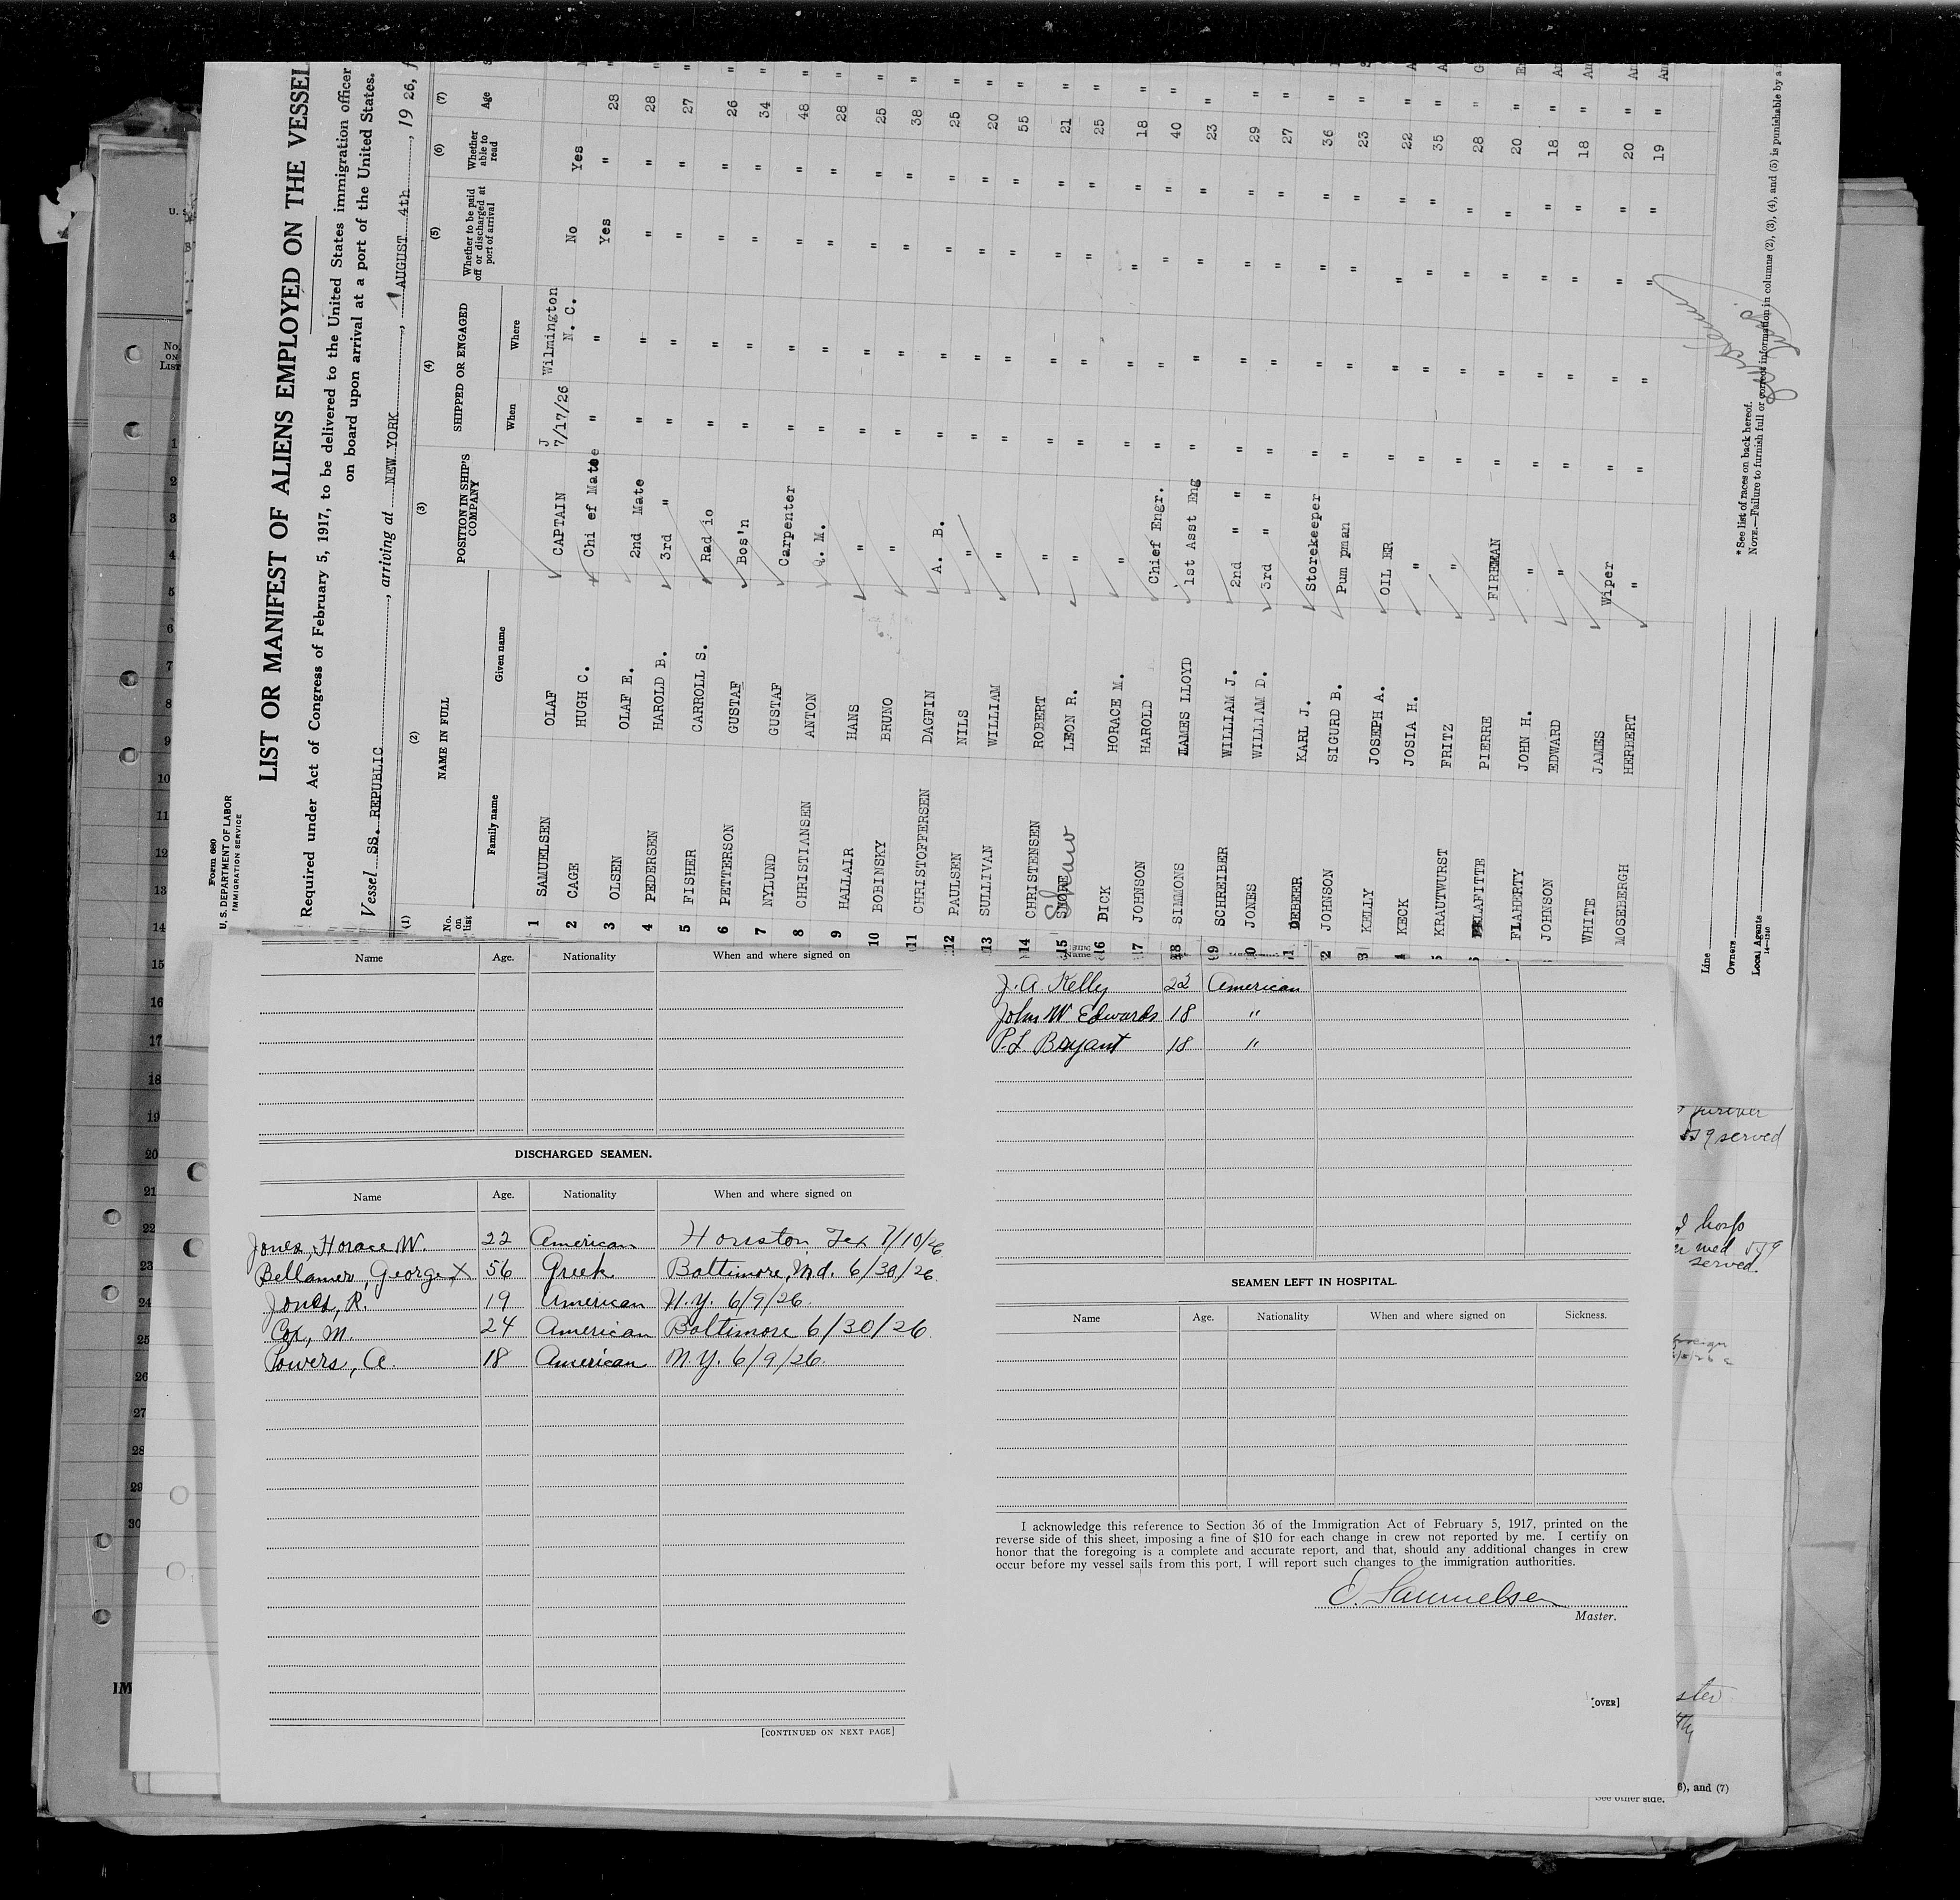 Form 680
U. S. DEPARTMENT OF LABOR
IMMIGRATION SERVICE
LIST OR MANIFEST OF ALIENS EMPLOYED ON THE VESSEL
Required under Act of Congress of February 5, 1917, to be delivered to the United States immigration officer
on board upon arrival at a port of the United States.
Vessel SS. REPUBLIC, arriving at NEW YORK, AUGUST 4th, 1926,
(1) (2) (3) (4) (5) (6) (7)
No. on list NAME IN FULL POSITION IN SHIP'S COMPANY SHIPPED OR ENGAGED Whether to be paid off or discharged at port of arrival Whether able to read Age
Family name Given name When Where
1 SAMUELSEN OLAF CAPTAIN J 7/17/26 Wilmington N. C. No Yes
2 CAGE HUGH C. Chief Mate " " Yes " 28
3 OLSEN OLAF E. 2nd Mate " " " " 28 "
4 PEDERSEN HAROLD B. 3rd " " " " " 27 "
5 FISHER CARROLL S. Radio " " " " 26 "
6 PETTERSON GUSTAF Bos'n " " " " 34 "
7 NYLUND GUSTAF Carpenter " " " " 48 "
8 CHRISTIANSEN ANTON Q. M. " " " " 28 "
9 HALLAIR HANS " " " " " 25 "
10 BOBINSKY BRUNO " " " " " 38 "
11 CHRISTOFFERSEN DAGFIN A. B. " " " " 25 "
12 PAULSEN NILS " " " " " 20 "
13 SULLIVAN WILLIAM " " " " " 55 "
14 CHRISTENSEN ROBERT " " " " " 21 "
15 LEON R. " " " " " 25 "
16 DICK HORACE M. " " " " " 18 "
17 JOHNSON HAROLD Chief Engr. " " " " 40 "
18 SIMMONS JAMES LLOYD 1st Asst Eng " " " " 23 "
19 SCHREIBER WILLIAM J. 2nd " " " " " " 29 "
JONES WILLIAM D. 3rd " " " " " " 27 "
DEBEER KARL J. Storekeeper " " " " 36 "
JOHNSON SIGURD B. Pumpman " " " " 23 "
KELLY JOSEPH A. OILER " " " " 22 "
KECK JOSIA H. " " " " " 35 "
KRAUTWURST FRITZ " " " " " 28 "
LAFITTE PIERRE FIREMAN " " " " 20 "
FLAHERTY JOHN H. " " " " " 18 "
JOHNSON EDWARD " " " " " 18 "
WHITE JAMES Wiper " " " " 20 "
MOSEBERGH HERBERT " " " " " 19 "
Line
Owners
Local Agents
*See list of races on back hereof.
NOTE.—Failure to furnish full or correct information in columns (2), (3), (4), and (5) is punishable by a
Name Age. Nationality When and where signed on
DISCHARGED SEAMEN.
Name Age. Nationality When and where signed on
Jones, Horace W. 22 American Houston Tex 7/10/26
Bellamer, George X 56 Greek Baltimore, Md. 6/30/26
Jones, R. 19 American N.Y. 6/9/26.
Cox, M. 24 American Baltimore 6/30/26
Powers, A. 18 American N.Y. 6/9/26.
[CONTINUED ON NEXT PAGE]
J. A. Kelly 22 American
John W. Edwards 18 "
P. L. Bryant 18 "
SEAMEN LEFT IN HOSPITAL.
Name Age. Nationality When and where signed on Sickness.
I acknowledge this reference to Section 36 of the Immigration Act of February 5, 1917, printed on the
reverse side of this sheet, imposing a fine of $10 for each change in crew not reported by me. I certify on
honor that the foregoing is a complete and accurate report, and that, should any additional changes in crew
occur before my vessel sails from this port, I will report such changes to the immigration authorities.
O. Samuelsen
Master.
[OVER]
No. ON LIST
1
2
3
4
5
6
7
8
9
10
11
12
13
14
15
16
17
18
19
20
21
22
23
24
25
26
27
28
29
30
served
served.
6), and (7)
See other side.